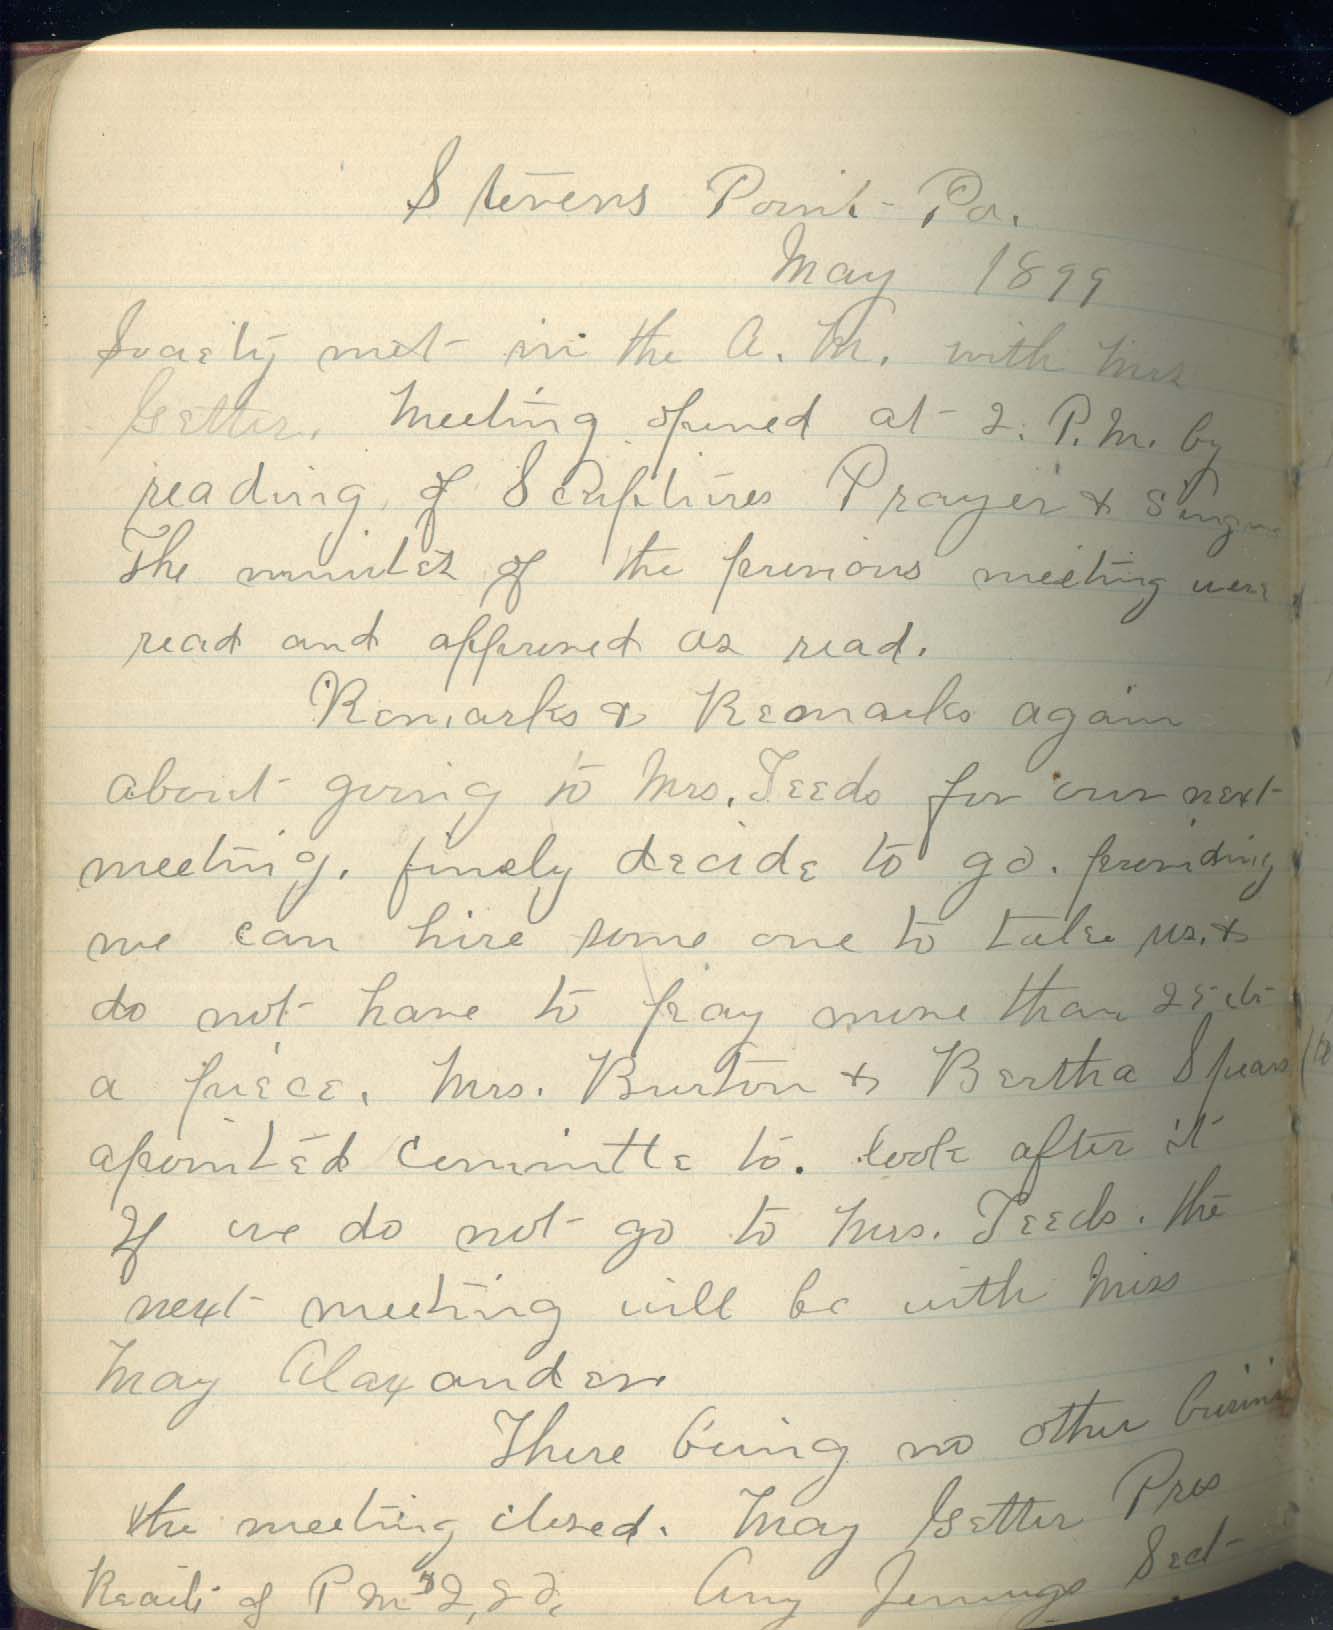 Stevens Point - Pa.
May 1899
Society met in the A. M. with Mrs
Getter. Meeting opened at 2. P. M. by
reading of Scriptures Prayer & Singing
The minutes of the previous meeting were
read and approved as read.
Remarks & Remarks again
about going to Mrs. Teeds for our next
meeting. finely decide to go. providing
we can hire some one to take us. &
do not have to pay more than 25 cts
a piece. Mrs. Burton & Bertha Spears
apointed committe to. look after it
If we do not go to Mrs. Teeds. the
next meeting will be with Miss
May Alaxander
There being no other busini
the meeting closed. May Getter Pres
of P M $2,22. Amy Jennings Sect-